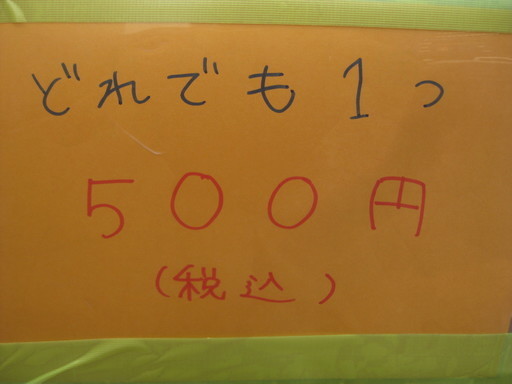 どれでも1つ
500円
(税込)